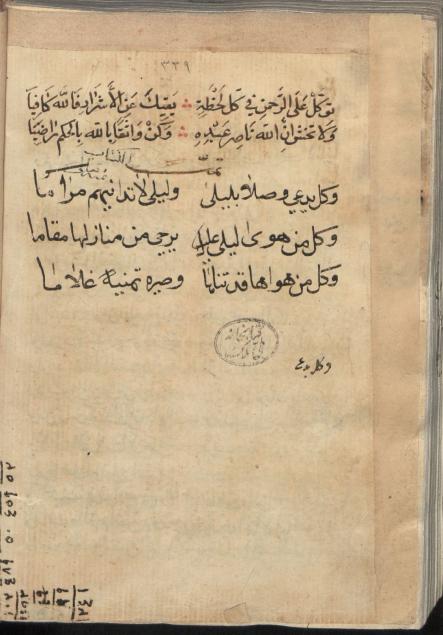 ٣٣٩
توكل على الرحمن في كل لحظة يقيك عن الأشرار فالله كافيا
ولا تخش ان الله ناصر عبده وكن واثقا بالله بالحكم راضيا
تمت
وكل يدعي وصلا بليلى وليلى لا تدانيهم مراما
وكل من هوى ليلى عليل يرجي من منازلها مقاما
وكل من هواها قد تناها وصيره تمنيه غلاما
وكل يدعي